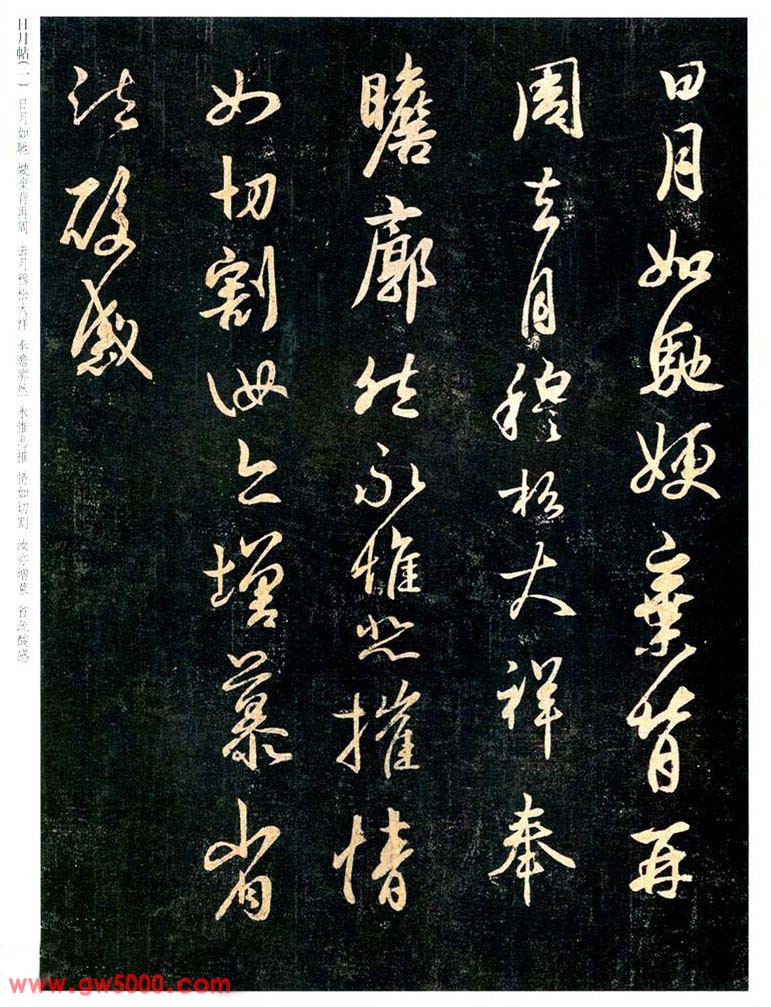 日月如馳嫂棄背再
周去月穆松大祥奉
瞻廓然永惟悲摧情
如切割汝亦增慕省
疏酸感
日月帖(一) 日月如馳 嫂棄背再周 去月穆松大祥 奉瞻廓然 永惟悲摧 情如切割 汝亦增慕 省疏酸感
www.gw5000.com